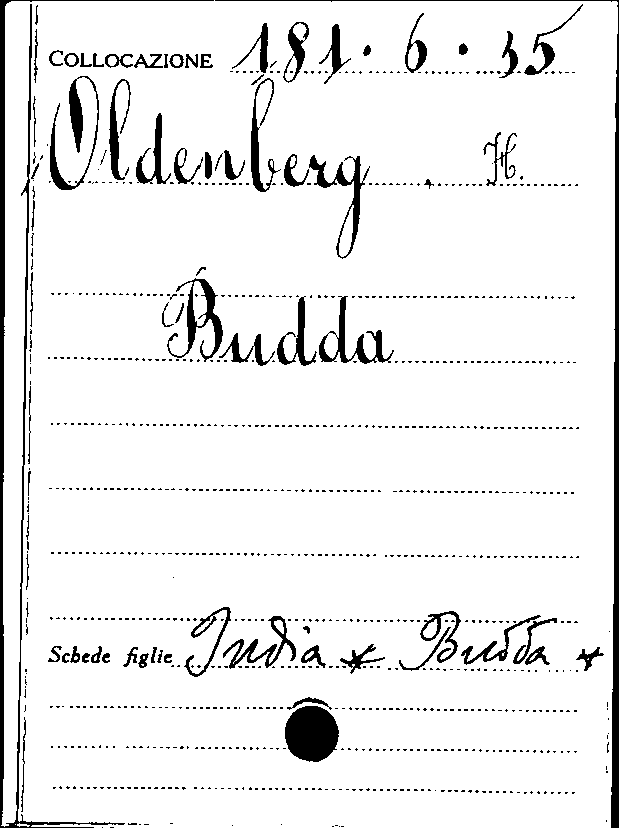 COLLOCAZIONE 181.6.35
Oldenberg . H.
Budda
Schede figlie India * Budda *